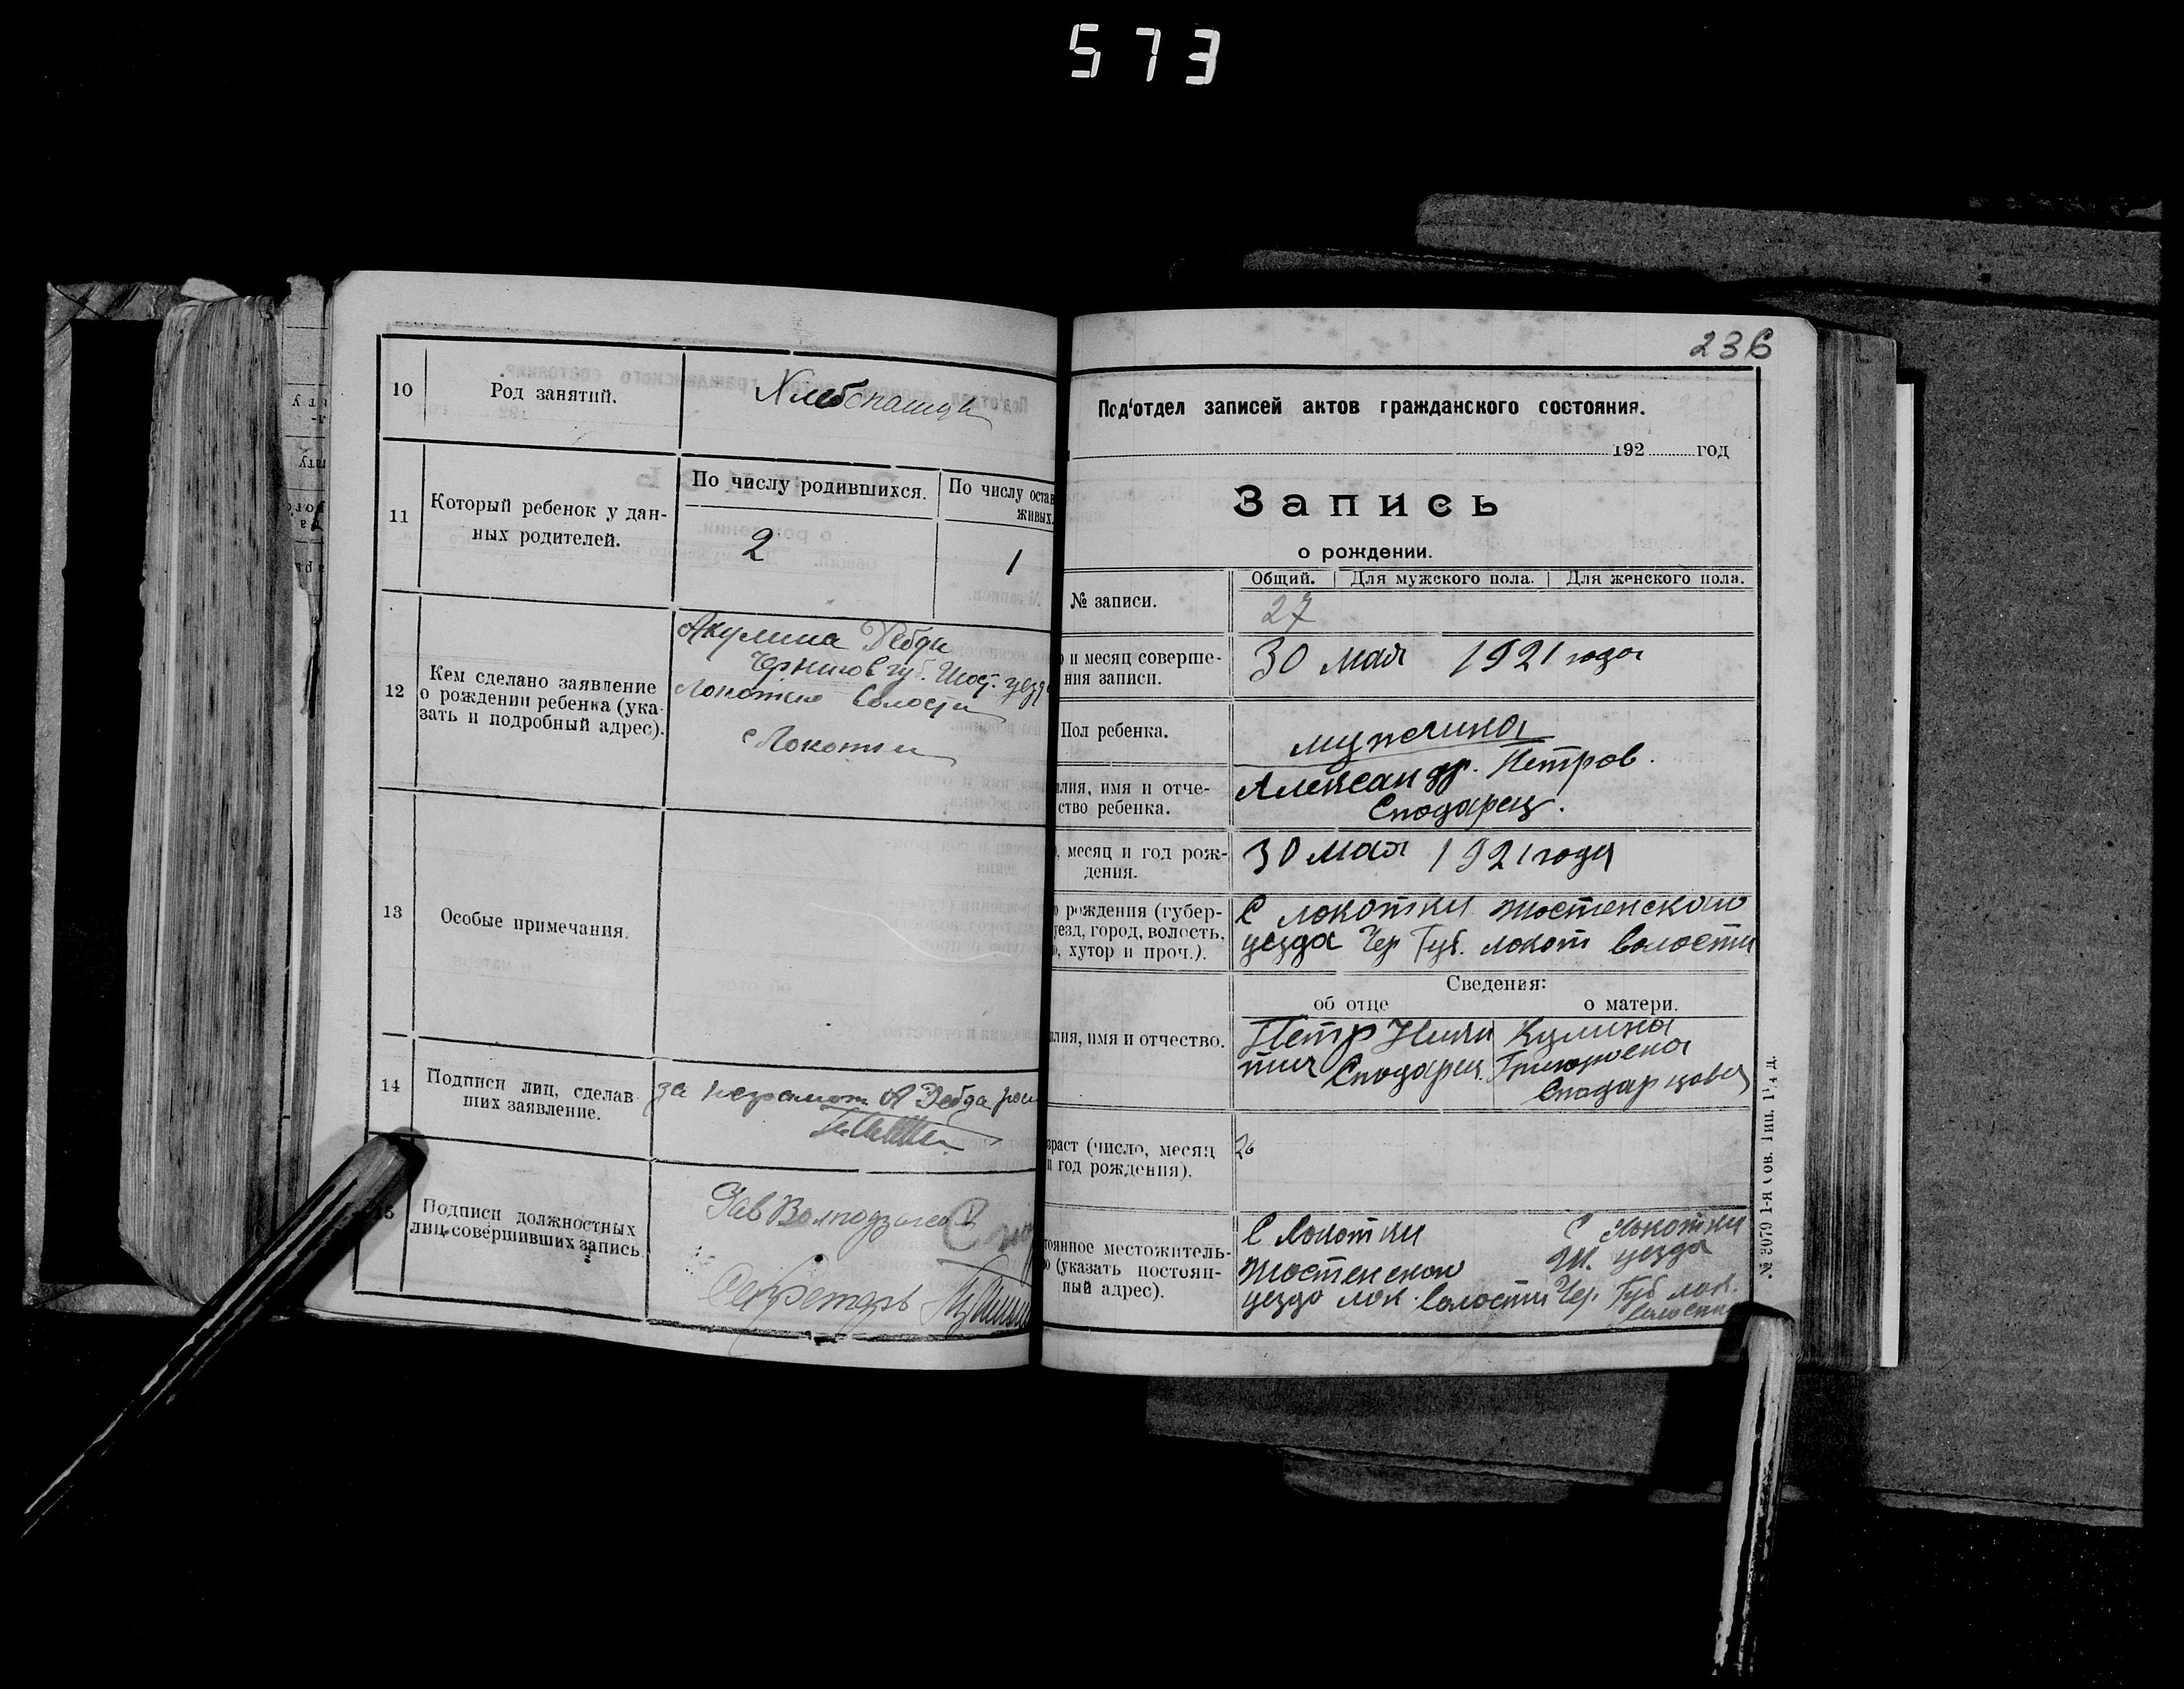 573
10
Род занятий.
Хлебопашцы
11
Который ребенок у дан-
ных родителей.
По числу родившихся.
По числу остав
живых.
2
1
12
Кем сделано заявление
о рождении ребенка (ука-
зать и подробный адрес).
Акулина
Чернигов губ. Шост. уезда
волости
с Локотки
13
Особые примечания.
14
Подписи лиц, сделав
ших заявление.
за неграмот. А
15
Подписи должностных
лиц совершивших запись.
Зав
Секретарь
236
Под'отдел записей актов гражданского состояния.
192 год
Запись
о рождении.
№ записи.
Общий. Для мужского пола. Для женского пола.
27
о и месяц соверше-
ния записи.
30 мая 1921 года
Пол ребенка.
мужчина
лия, имя и отче-
ство ребенка.
Александр. Петров.
Сподарец.
, месяц и год рож-
дения.
30 мая 1921 года
о рождения (губер-
уезд, город, волость,
о, хутор и проч.).
С Локотки Шостенского
уезда Чер Губ. Локот волости
Сведения:
об отце о матери.
лия, имя и отчество.
Петр
Сподарец.
Кулина
Сподарцова
зраст (число, месяц
и год рождения).
26
тоянное местожитель-
о (указать постоян-
ный адрес).
С Локотки
Шостенского
уезда лок. волости
С Локотки
Ш. уезда
Чер. Губ лок.
волости
№ 3079 1-я Сов. Тип.